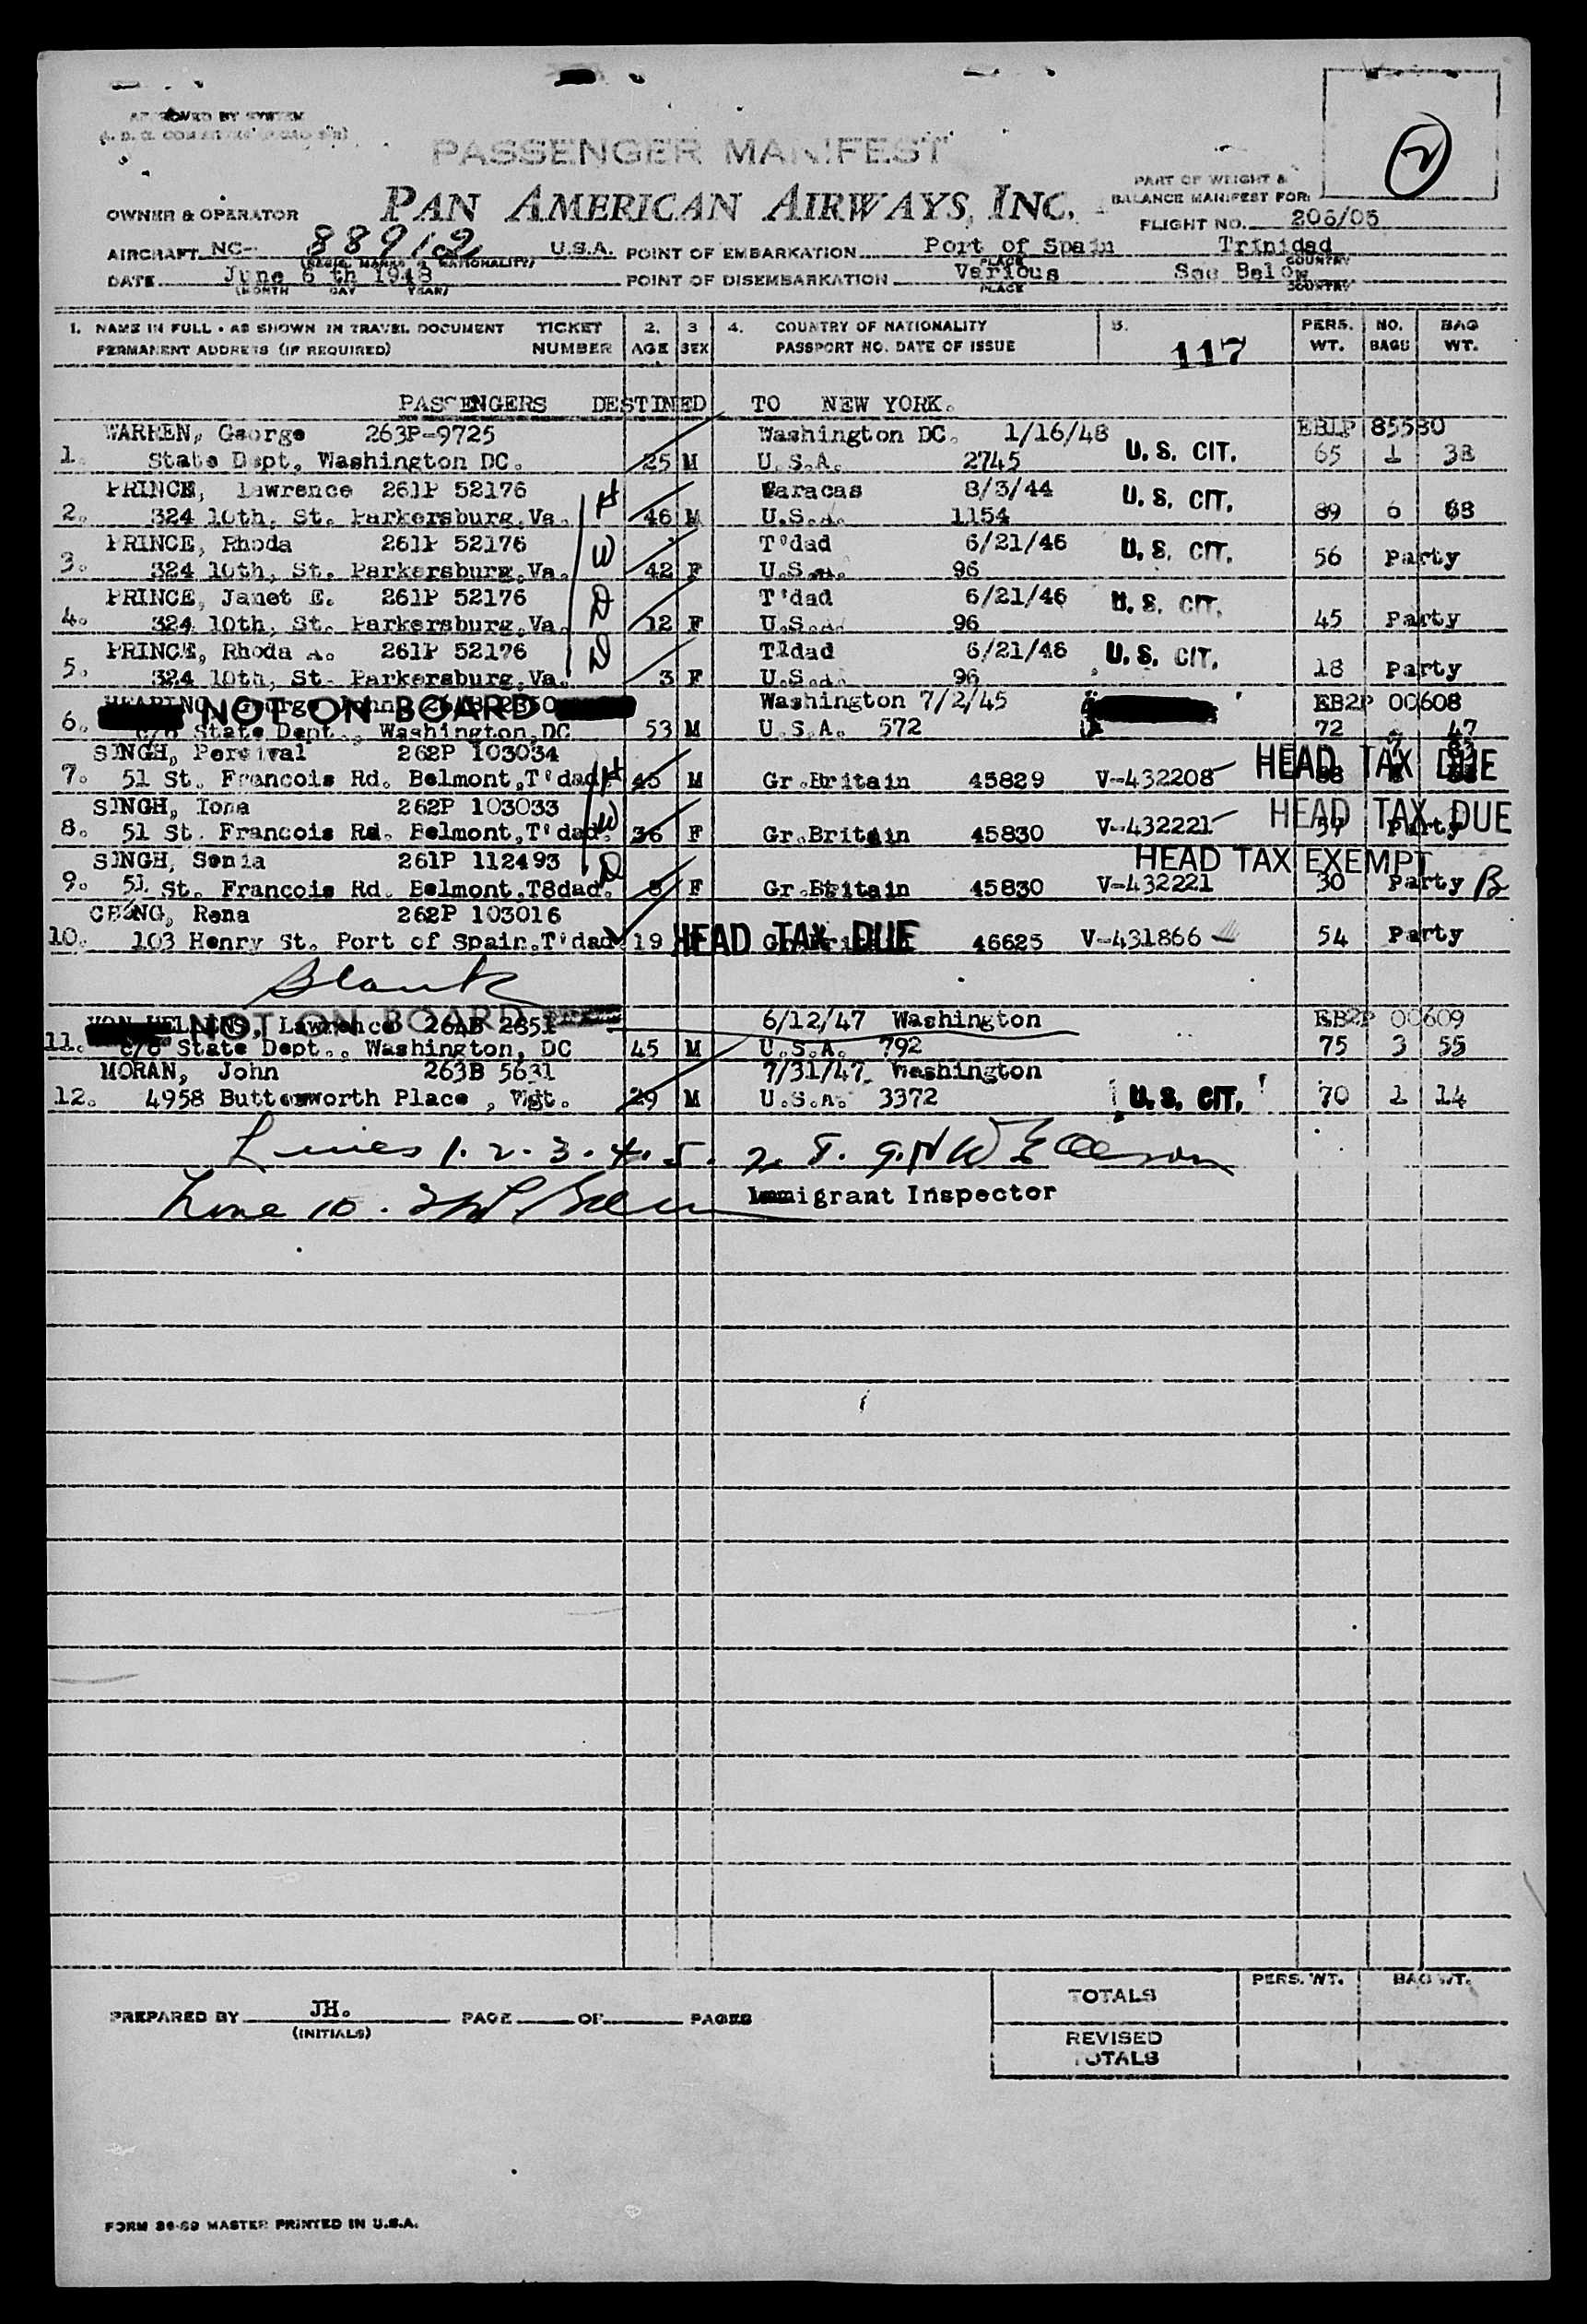 APPROVED BY SYSTEM
②
PASSENGER MANIFEST
PART OF WEIGHT &
BALANCE MANIFEST FOR:
OWNER & OPERATOR PAN AMERICAN AIRWAYS, INC.
FLIGHT NO. 206/05
AIRCRAFT NC- 88912 U.S.A. POINT OF EMBARKATION Port of Spain Trinidad
PLACE COUNTRY
DATE June 6 th 1948 POINT OF DISEMBARKATION Various See Below
(MONTH DAY YEAR) PLACE COUNTRY
1. NAME IN FULL - AS SHOWN IN TRAVEL DOCUMENT TICKET 2. 3 4. COUNTRY OF NATIONALITY 5. PERS. NO. BAG
PERMANENT ADDRESS (IF REQUIRED) NUMBER AGE SEX PASSPORT NO. DATE OF ISSUE 117 WT. BAGS WT.
PASSENGERS DESTINED TO NEW YORK.
WARREN, George 263P-9725 Washington DC. 1/16/48 U. S. CIT. EB1P 85580
1. State Dept, Washington DC. 25 M U.S.A. 2745 65 1 38
PRINCE, Lawrence 261P 52176 H Caracas 8/3/44 U. S. CIT.
2. 324 10th, St. Parkersburg,Va. 46 M U.S.A. 1154 89 6 68
PRINCE, Rhoda 261P 52176 W T'dad 6/21/46 U. S. CIT.
3. 324 10th, St. Parkersburg,Va. 42 F U.S.A. 96 56 Party
PRINCE, Janet E. 261P 52176 D T'dad 6/21/46 U. S. CIT.
4. 324 10th, St. Parkersburg,Va. 12 F U.S.A. 96 45 Party
PRINCE, Rhoda A. 261P 52176 D T'dad 6/21/46 U. S. CIT.
5. 324 10th, St. Parkersburg,Va. 3 F U.S.A. 96 18 Party
NOT ON BOARD Washington 7/2/45 EB2P 00608
6. c/o State Dept., Washington,DC 53 M U.S.A. 572 72 47
SINGH, Percival 262P 103034
7. 51 St. Francois Rd. Belmont,T'dad. H 45 M Gr.Britain 45829 V-432208 HEAD TAX DUE
SINGH, Iona 262P 103033
8. 51 St. Francois Rd. Belmont,T'dad. W 36 F Gr.Britain 45830 V-432221 HEAD TAX DUE 57 Party
SINGH, Sonia 261P 112493 HEAD TAX EXEMPT
9. 51 St. Francois Rd. Belmont,T8dad. D 8 F Gr.Britain 45830 V-432221 30 Party B
CHONG, Rena 262P 103016
10. 103 Henry St. Port of Spain,T'dad 19 HEAD TAX DUE 46625 V-431866 54 Party
Blank
NOT ON BOARD Lawrence 264B 2851 6/12/47 Washington EB2P 00609
11. c/o State Dept., Washington, DC 45 M U.S.A. 792 75 3 55
MORAN, John 263B 5631 7/31/47 Washington
12. 4958 Butterworth Place , Wgt. 29 M U.S.A. 3372 U. S. CIT. 70 1 14
Lines 1. 2. 3. 4. 5. 7. 8. 9.
Immigrant Inspector
Line 10.
PREPARED BY JH. PAGE OF PAGES
(INITIALS)
PERS. WT. BAG WT.
TOTALS
REVISED
TOTALS
FORM 36-59 MASTER PRINTED IN U.S.A.